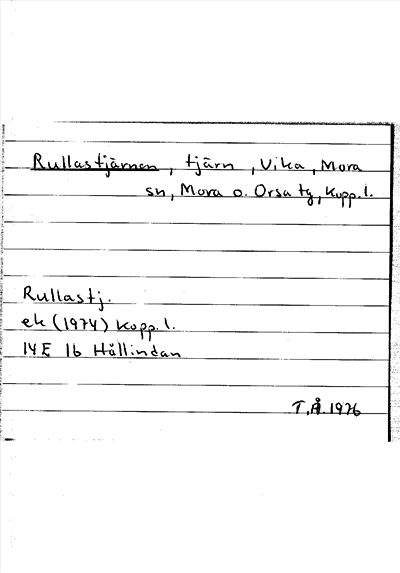 Rullastjärnen, tjärn, Vika, Mora
sn, Mora o. Orsa tg, Kopp. l.
Rullastj.
ek (1974) Kopp. l.
14E 1b Hållindan
T.Å. 1976